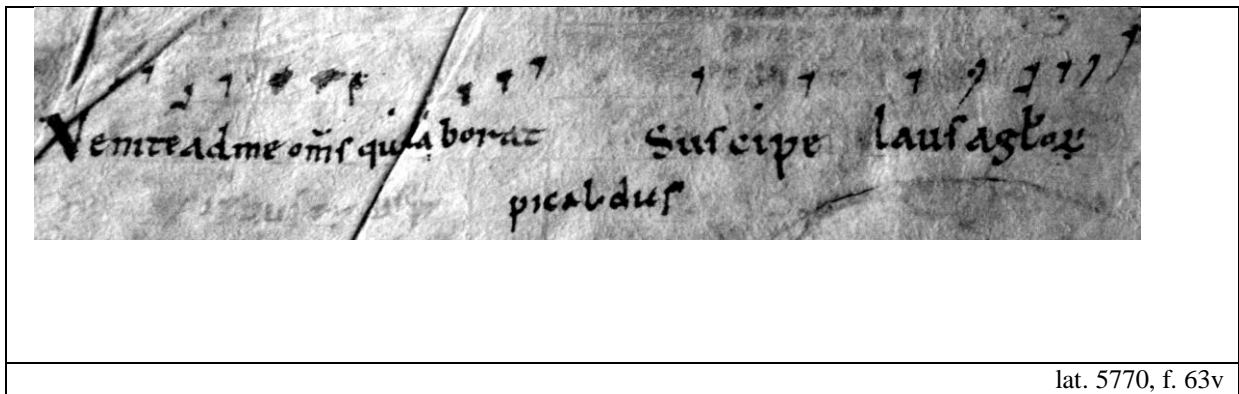 Veniteadme om̅s qui labor̅at Suscipe laus agłoꝝ
picaldus
lat. 5770, f. 63v